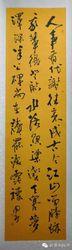 人事有代謝往來成古今江山留勝跡
我輩復登臨水落魚梁淺天寒夢
澤深羊公碑尚在讀罷淚沾襟